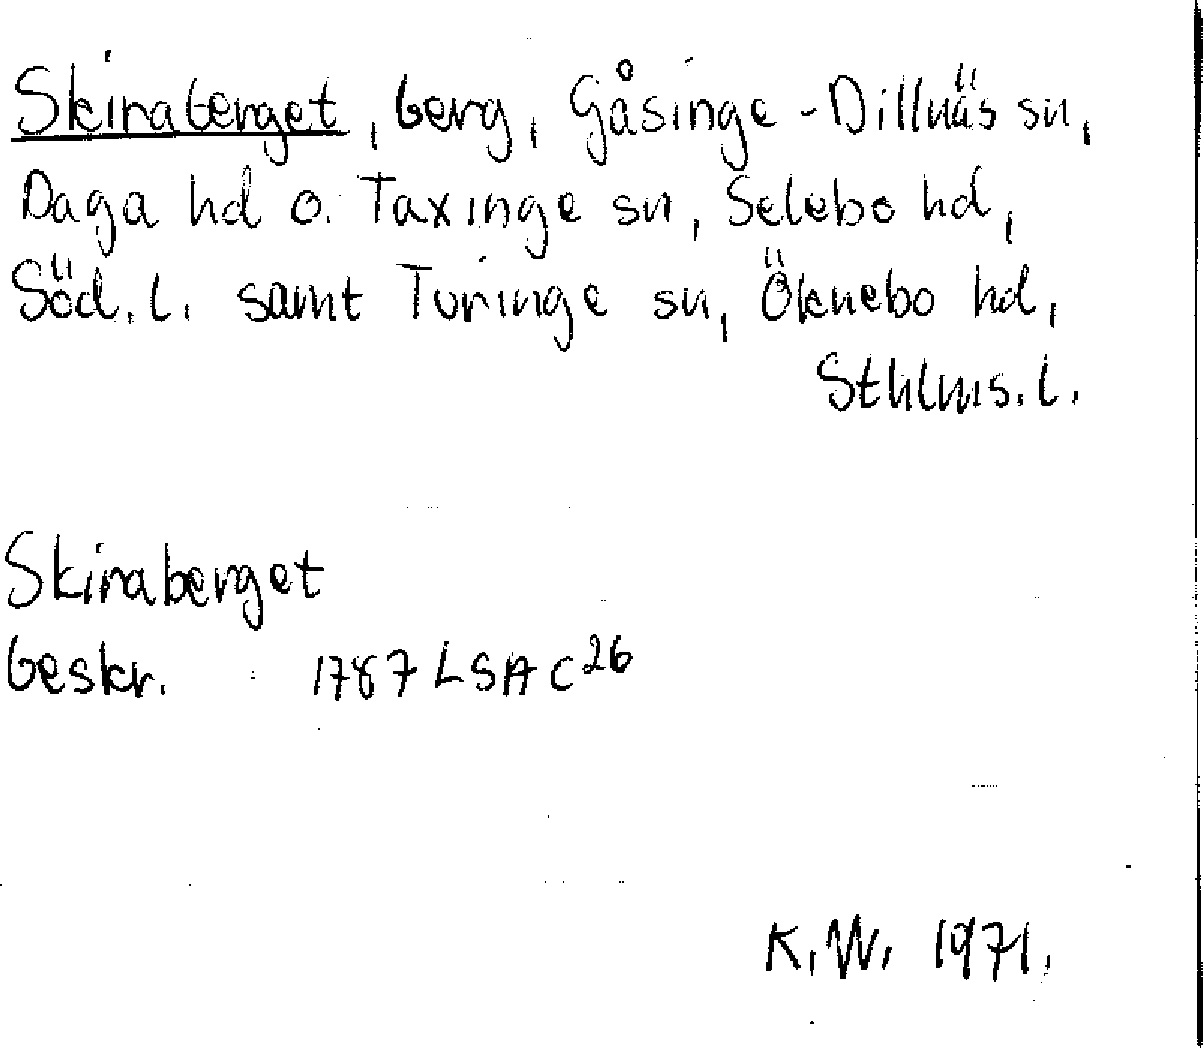 Skiraberget, berg, Gåsinge-Dillnäs sn,
Daga hd o. Taxinge sn, Selebo hd,
Söd. l. samt Turinge sn, Öknebo hd,
Sthlms. l.
Skiraberget
beskr. 1787 LSA C26
K.W. 1971.